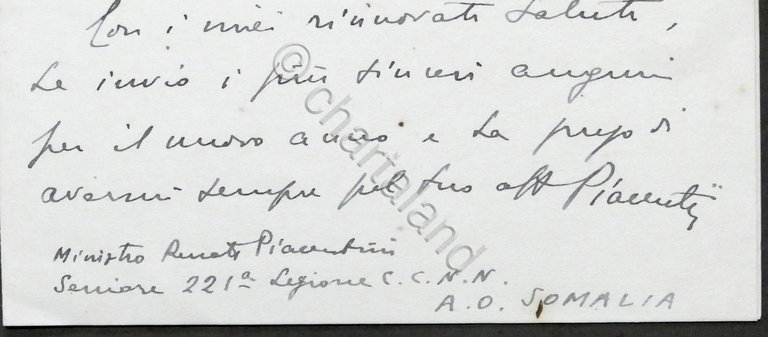 Con i miei rinnovati saluti,
Le invio i più sinceri auguri
per il nuovo anno e La prego di
avermi sempre pel Suo aff Piacentini
Ministro Renato Piacentini
Seniore 221ª Legione C.C.N.N.
A.O. SOMALIA
© chartaland